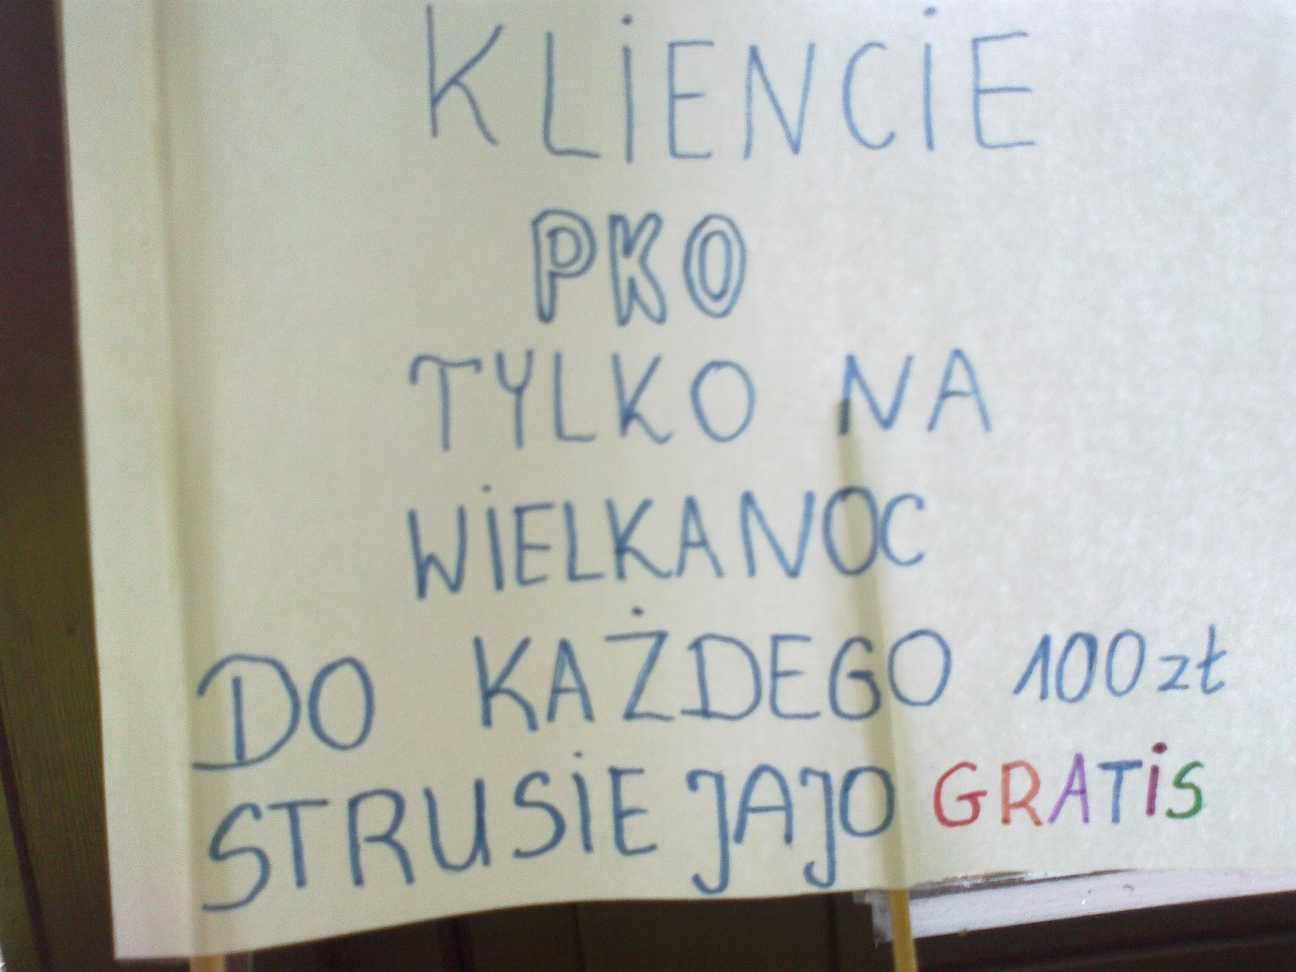 KLiENCiE
PKO
TYLKO NA
WiELKANOC
DO KAŻDEGO 100 zł
STRUSiE JAJO GRATiS